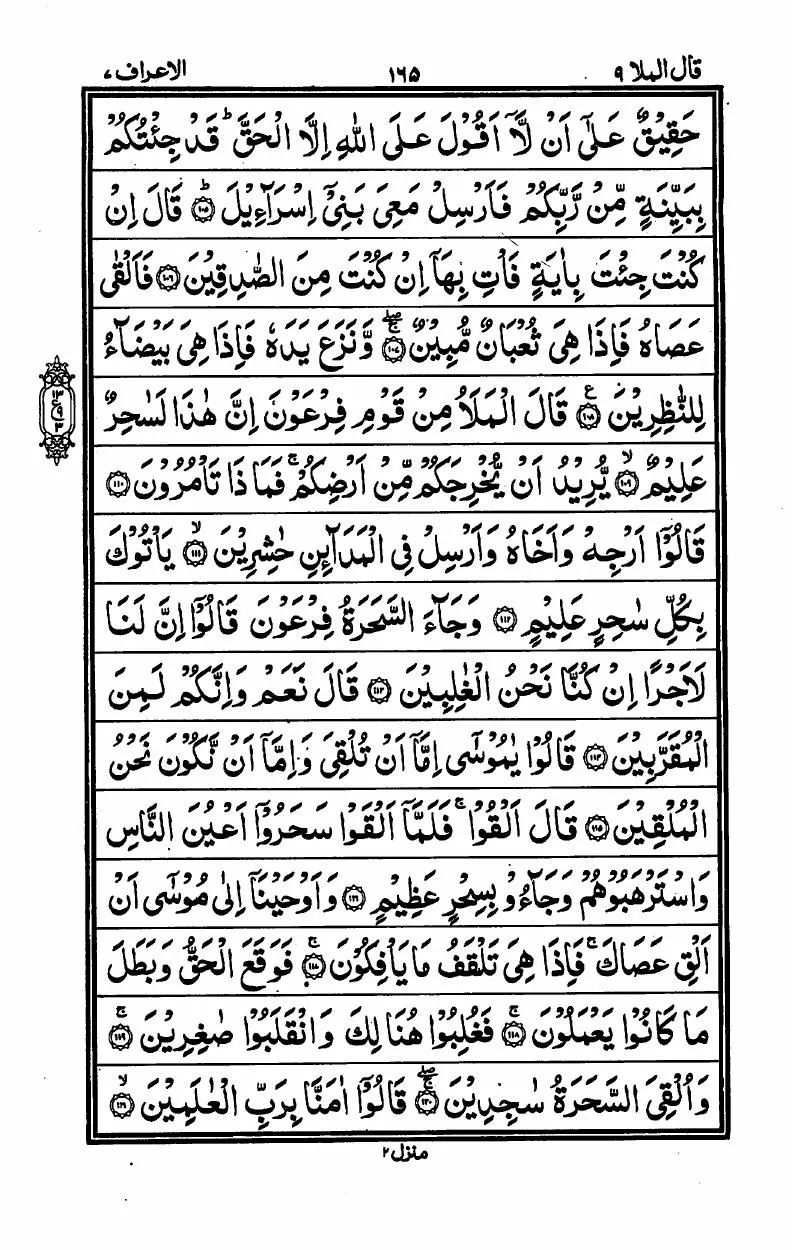 قال الملا ٩ ١٦٥ الاعراف ٧
حَقِيْقٌ عَلٰۤى اَنْ لَّاۤ اَقُوْلَ عَلَى اللّٰهِ اِلَّا الْحَقَّ ؕ قَدْ جِئْتُكُمْ
بِبَيِّنَةٍ مِّنْ رَّبِّكُمْ فَاَرْسِلْ مَعِىَ بَنِىْۤ اِسْرَآءِيْلَ ؕ ﴿١٠٥﴾ قَالَ اِنْ
كُنْتَ جِئْتَ بِاٰيَةٍ فَاْتِ بِهَاۤ اِنْ كُنْتَ مِنَ الصّٰدِقِيْنَ ﴿١٠٦﴾ فَاَلْقٰى
عَصَاهُ فَاِذَا هِىَ ثُعْبَانٌ مُّبِيْنٌ ۖۚ ﴿١٠٧﴾ وَّنَزَعَ يَدَهٗ فَاِذَا هِىَ بَيْضَآءُ
لِلنّٰظِرِيْنَ ࣖ ﴿١٠٨﴾ قَالَ الْمَلَاُ مِنْ قَوْمِ فِرْعَوْنَ اِنَّ هٰذَا لَسٰحِرٌ
عَلِيْمٌ ۙ ﴿١٠٩﴾ يُّرِيْدُ اَنْ يُّخْرِجَكُمْ مِّنْ اَرْضِكُمْ ۚ فَمَا ذَا تَاْمُرُوْنَ ﴿١١٠﴾
قَالُوْۤا اَرْجِهْ وَاَخَاهُ وَاَرْسِلْ فِى الْمَدَآئِنِ حٰشِرِيْنَ ۙ ﴿١١١﴾ يَاْتُوْكَ
بِكُلِّ سٰحِرٍ عَلِيْمٍ ﴿١١٢﴾ وَجَآءَ السَّحَرَةُ فِرْعَوْنَ قَالُوْۤا اِنَّ لَنَا
لَاَجْرًا اِنْ كُنَّا نَحْنُ الْغٰلِبِيْنَ ﴿١١٣﴾ قَالَ نَعَمْ وَاِنَّكُمْ لَمِنَ
الْمُقَرَّبِيْنَ ﴿١١٤﴾ قَالُوْا يٰمُوْسٰۤى اِمَّاۤ اَنْ تُلْقِىَ وَاِمَّاۤ اَنْ نَّكُوْنَ نَحْنُ
الْمُلْقِيْنَ ﴿١١٥﴾ قَالَ اَلْقُوْا ۚ فَلَمَّاۤ اَلْقَوْا سَحَرُوْۤا اَعْيُنَ النَّاسِ
وَاسْتَرْهَبُوْهُمْ وَجَآءُوْ بِسِحْرٍ عَظِيْمٍ ﴿١١٦﴾ وَاَوْحَيْنَاۤ اِلٰى مُوْسٰۤى اَنْ
اَلْقِ عَصَاكَ ۚ فَاِذَا هِىَ تَلْقَفُ مَا يَاْفِكُوْنَ ۚ ﴿١١٧﴾ فَوَقَعَ الْحَقُّ وَبَطَلَ
مَا كَانُوْا يَعْمَلُوْنَ ۚ ﴿١١٨﴾ فَغُلِبُوْا هُنَالِكَ وَانْقَلَبُوْا صٰغِرِيْنَ ۚ ﴿١١٩﴾
وَاُلْقِىَ السَّحَرَةُ سٰجِدِيْنَ ۖۚ ﴿١٢٠﴾ قَالُوْۤا اٰمَنَّا بِرَبِّ الْعٰلَمِيْنَ ۙ ﴿١٢١﴾
١٣
ع ٩
٣
منزل ٢